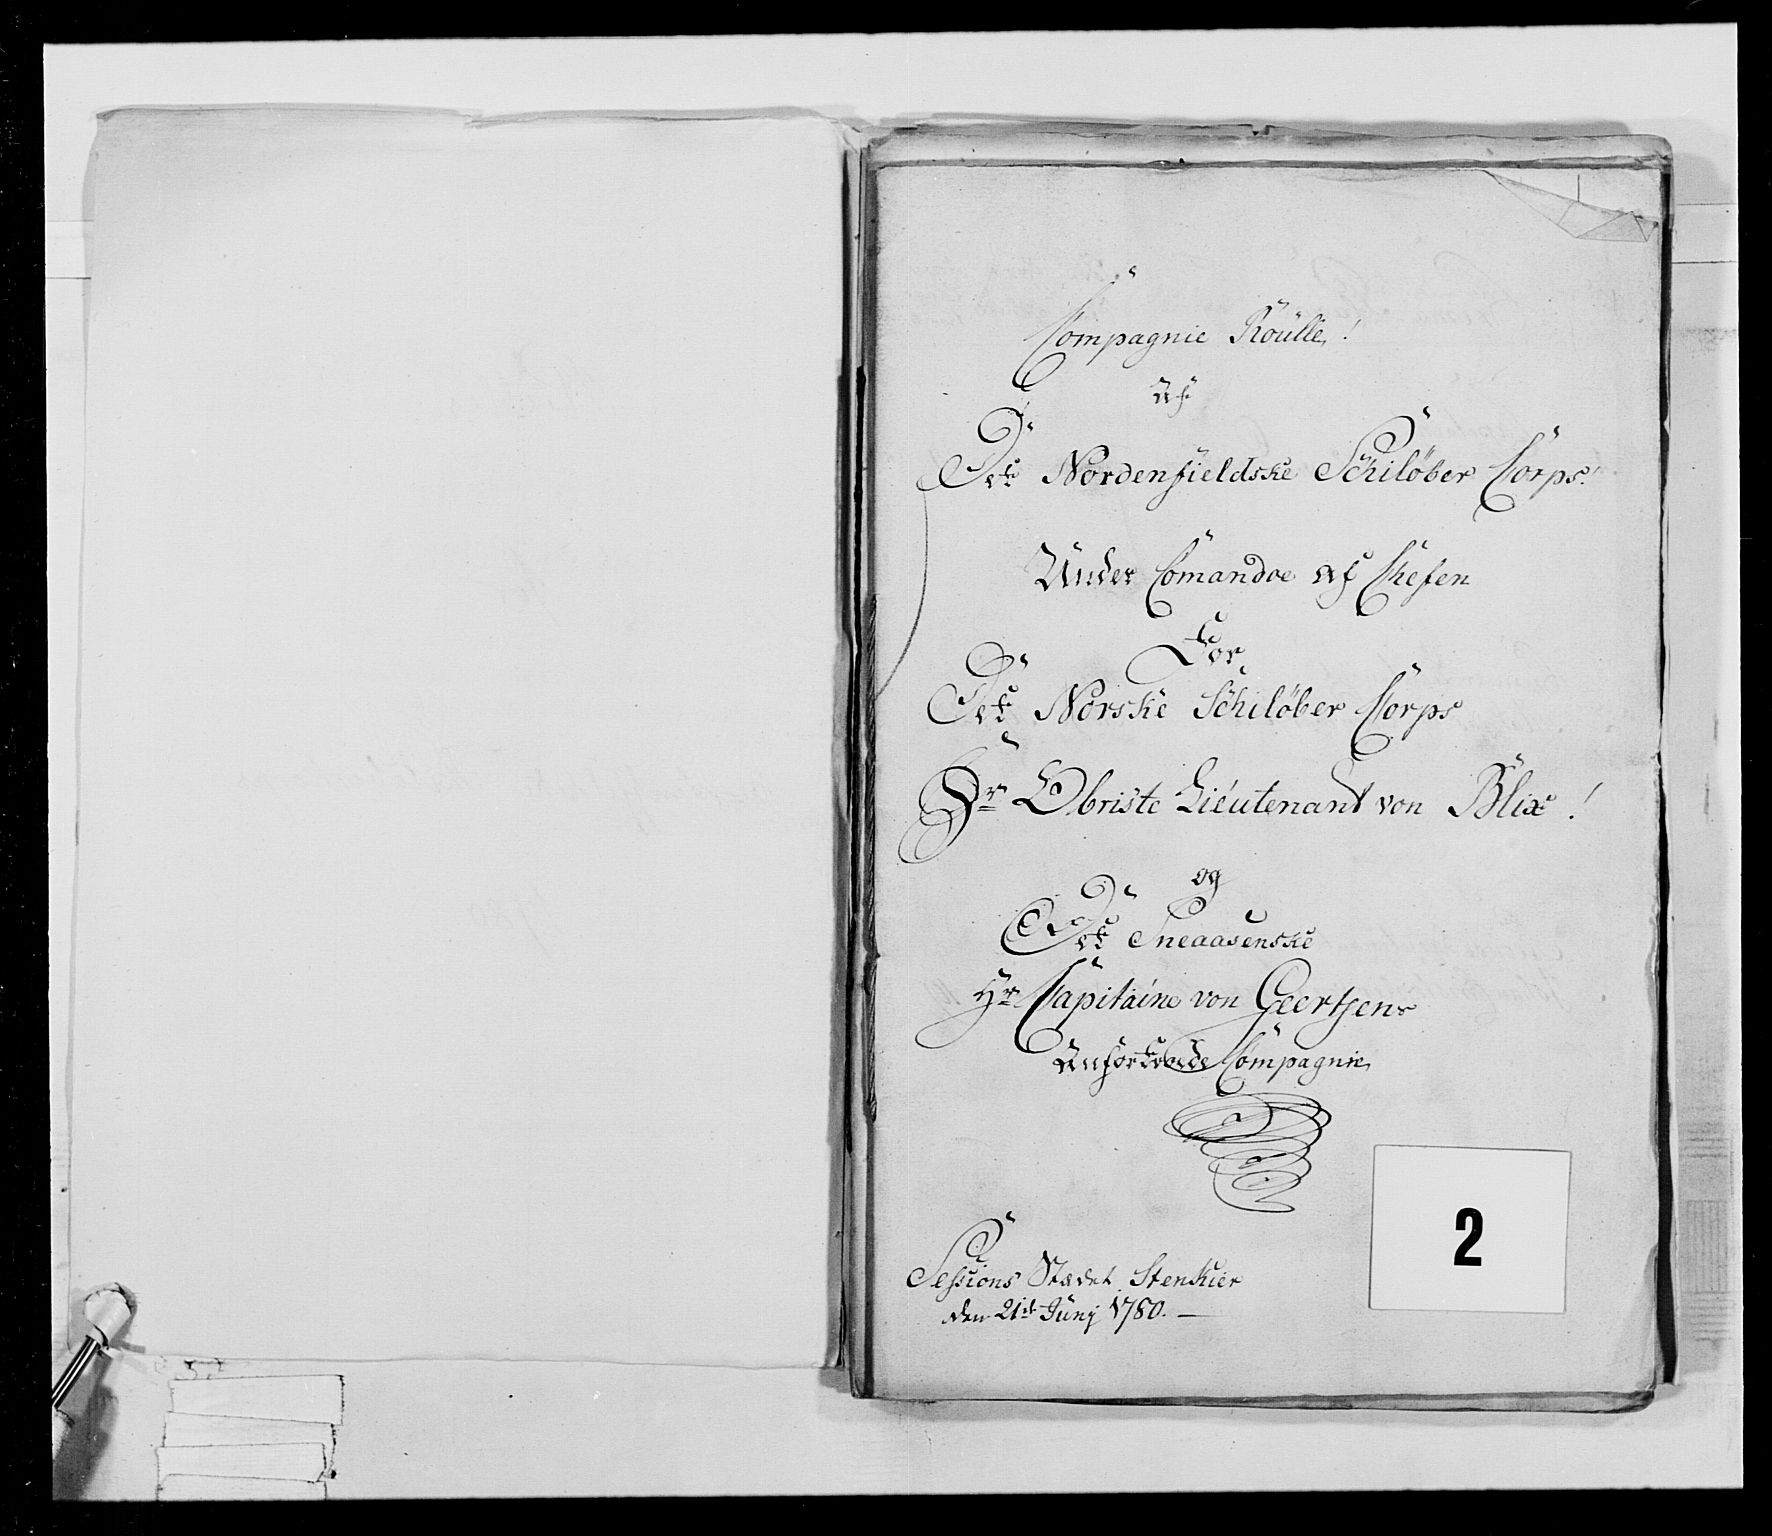 Compagnie Roülle!
Af
Det Nordenfieldske Schilöber Corps!
Under Comandoe af Chefen
For
Det Norske Schilöber Corps
Hr Obriste Lieutenant von Blix!
og
Det Sneaasenske
Hr Capitaine von Geertsens
Anfortroede Compagnie
Sessions Stædet Stenkier
den 21de Junj 1780. —
2